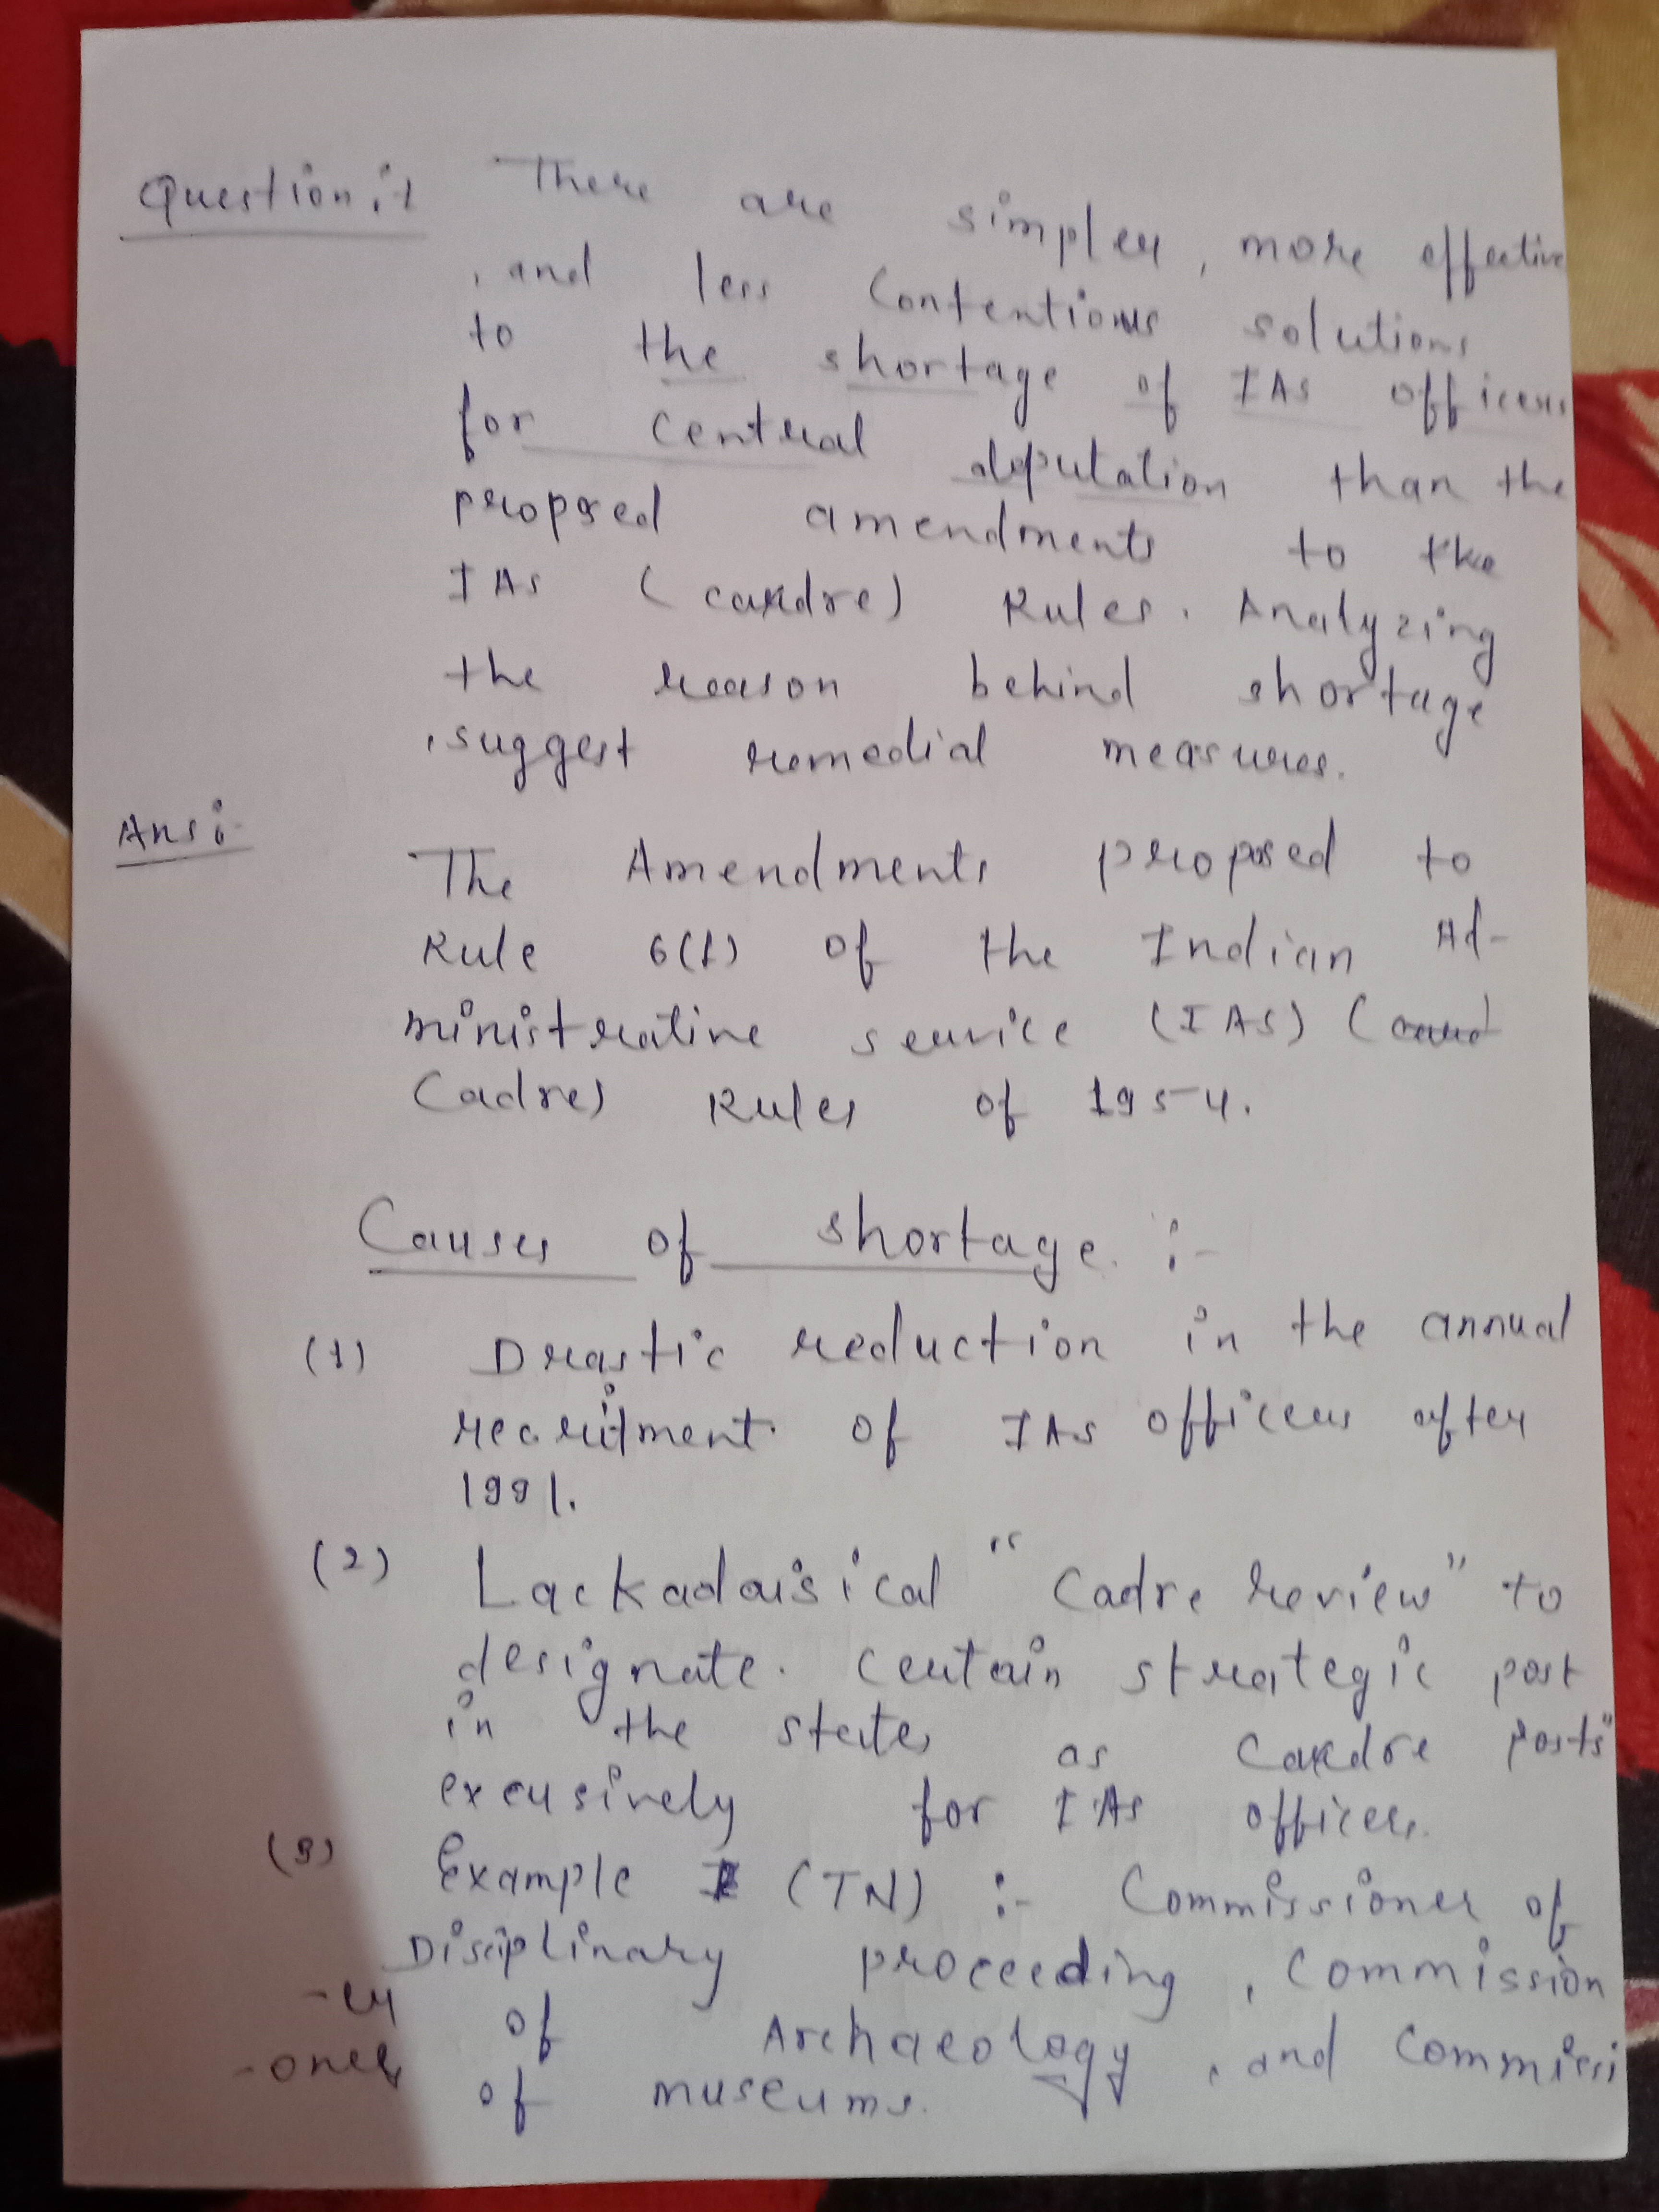 Question:1 There are simpler, more effective
, and less contentious solutions
to the shortage of IAS officers
for central deputation than the
proposed amendments to the
IAS (cadre) Rules. Analyzing
the reason behind shortage
, suggest remedial measures.
Ans:- The Amendments proposed to
Rule 6(1) of the Indian Ad-
ministrative service (IAS) (
Cadre) Rules of 1954.
Causes of shortage :-
(1) Drastic reduction in the annual
recruitment of IAS officers after
1991.
(2) Lackadaisical "Cadre Review" to
designate certain strategic post
in the states as Cadre posts"
excusively for IAS officers.
(3) Example (TN) :- Commissioner of
Disciplinary proceeding, Commission
-er of Archaeology, and Commissi
-oner of museums.